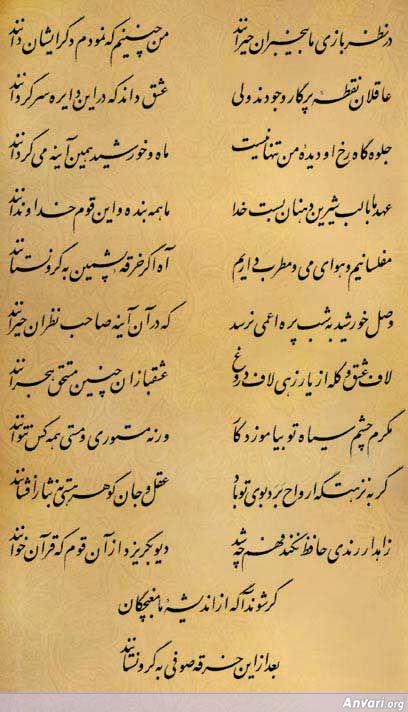 در نظربازی ما بیخبران حیرانند من چنینم که نمودم دگر ایشان دانند
عاقلان نقطه پرگار وجودند ولی عشق داند که در این دایره سرگردانند
جلوه گاه رخ او دیده من تنها نیست ماه و خورشید همین آینه می گردانند
عهد ما با لب شیرین دهنان بست خدا ما همه بنده و این قوم خداوندانند
مفلسانیم و هوای می و مطرب داریم آه اگر خرقه پشمین به گرو نستانند
وصل خورشید به شب پره اعمی نرسد که در آن آینه صاحب نظران حیرانند
لاف عشق و گله از یار زهی لاف دروغ عشقبازان چنین مستحق هجرانند
مگرم چشم سیاه تو بیاموزد کار ورنه مستوری و مستی همه کس نتوانند
گر به نزهتگه ارواح برد بوی تو باد عقل و جان گوهر هستی به نثار افشانند
زاهد ار رندی حافظ نکند فهم چه شد دیو بگریزد از آن قوم که قرآن خوانند
گر شوند آگه از اندیشه ما مغبچگان
بعد از این خرقه صوفی به گرو نستانند
Anvari.org